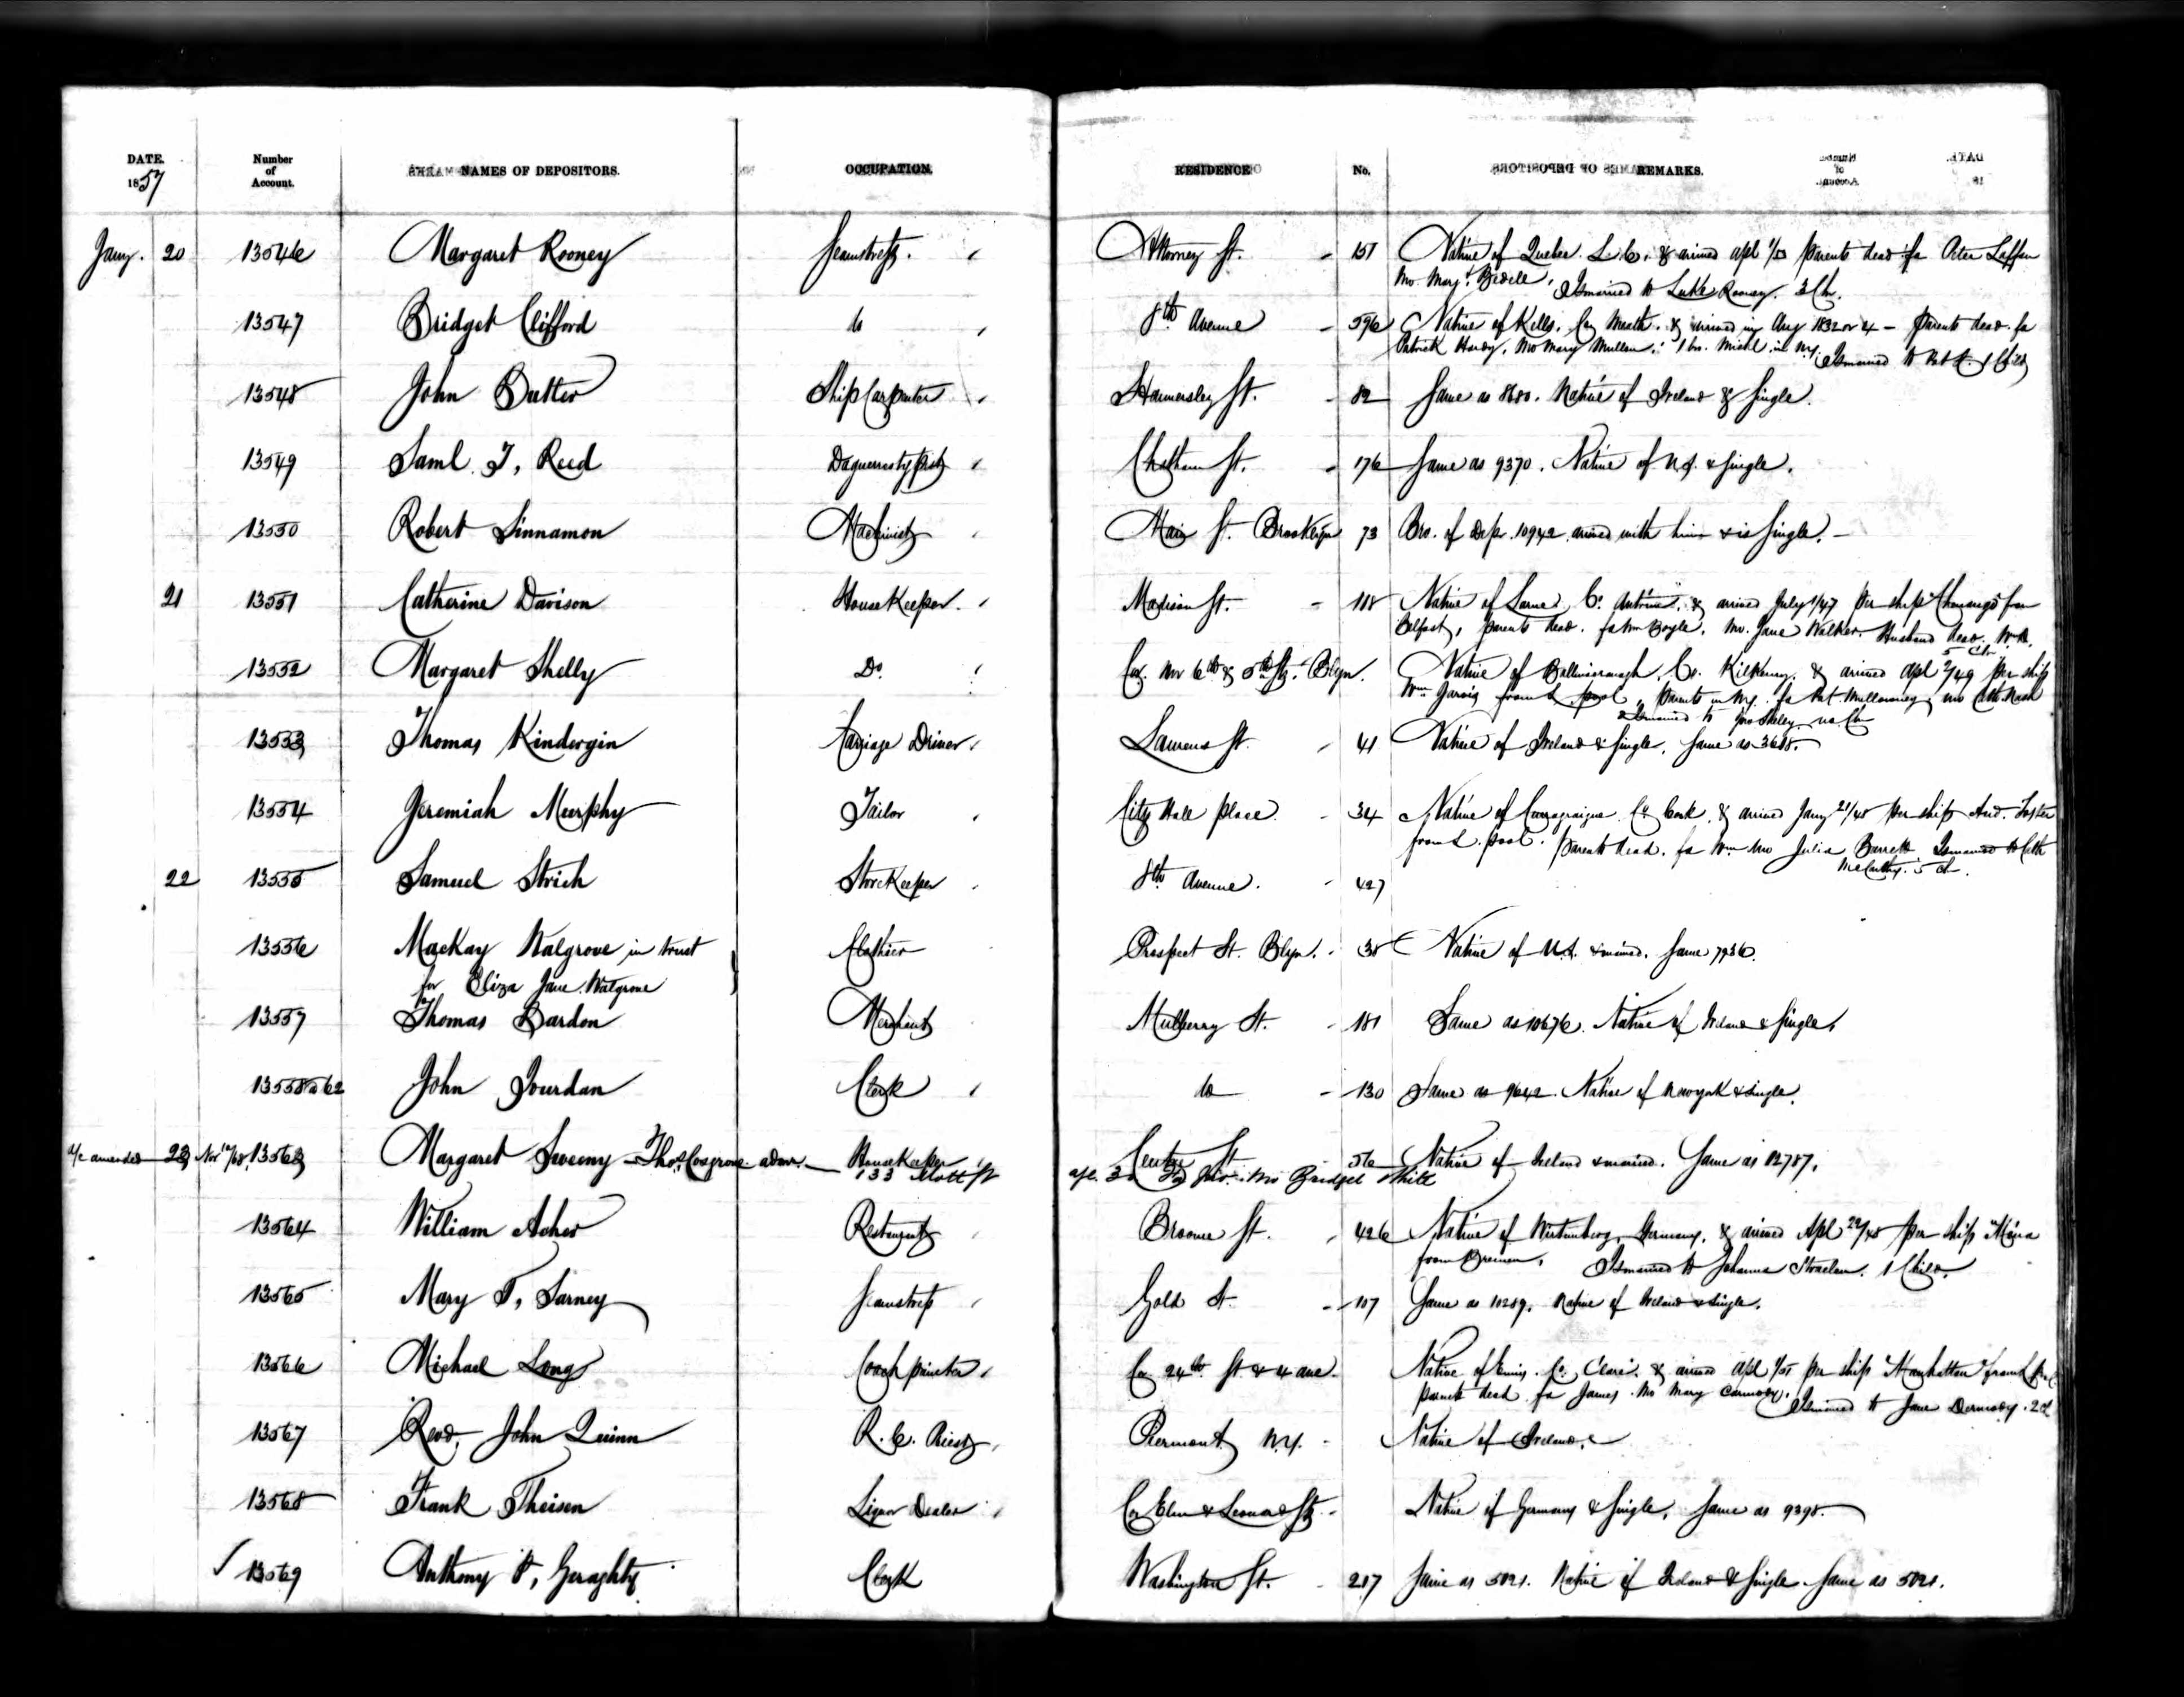 DATE. Number of Account. NAMES OF DEPOSITORS. OCCUPATION. RESIDENCE No. REMARKS.
1857
Jany. 20 13546 Margaret Rooney Seamstress. Attorney St. 151 Native of Quebec. L. C. & arrived apl 1/33 parents dead fa Peter Laffan
Mo. Mary Bedelle, Is married to Luke Rooney. 3 Ch.
13547 Bridget Clifford do 8th Avenue 596 Native of Kells, Coy Meath. & arrived in Aug 1832 or 4 - parents dead. fa
Patrick Hardy, mo Mary Mullen. 1 bro. Michl. in N.Y. Is married to Pat C. 1 Child
13548 John Butter Ship Carpenter Hamersley St. 82 Same as 8680. Native of Ireland & Single.
13549 Saml. T. Reed Daguerreotypist Chatham St. 176 Same as 9370. Native of N.Y. & Single.
13550 Robert Sinnamon Machinist Main St. Brooklyn 73 Bro. of Depr. 10942 arrived with him & is Single.
21 13551 Catherine Davison House Keeper. Madison St. 118 Native of Larne, Co. Antrim. & arrived July 1/47 per ship "Chenango" from
Belfast, parents dead. fa Wm Boyle. Mo. Jane Walker. Husband dead. Wm.
5 Ch.
13552 Margaret Shelly Do. Cor. Nor 6th & 5th St. Blyn. Native of Co. Kilkenny. & arrived apl 2/49 per ship
Wm Jarvis from L. pool, parents in N.Y. fa Pat mo Cath. Nash
Is married to Jno Shelly. no Ch
13553 Thomas Kindergin Carriage Driver Laurens St. 41 Native of Ireland & Single. Same as 3688.
13554 Jeremiah Murphy Tailor City Hall Place. 34 Native of Co Cork, & arrived Jany 21/48 per ship And. Foster
from L. pool. parents dead. fa Wm mo Julia Barrett. Is married to Cath
McCarthy. 5 Ch.
22 13555 Samuel Strich Store Keeper 8th Avenue. 427
13556 Mackay Walgrove in trust Clothier Prospect St. Blyn. 38 Native of U.S. & married. Same 7936.
for Eliza Jane Walgrove
13557 Thomas Bardon Merchant Mulberry St. 181 Same as 10676. Native of Ireland & Single.
13558 a 62 John Jourdan Clerk do 130 Same as 9642. Native of New York & Single.
a/c amended 23 Nov 12/68 13563 Margaret Sweeny Thos. Cosgrove admr. House Keeper Center St. 56 Native of Ireland & married. Same as 12787.
133 Mott St age. 30 Fa Jno. Mo Bridget White
13564 William Acher Restaurant Broome St. 426 Native of Wirtemberg, Germany, & arrived Apl 22/48 per ship "Alina
from Bremen. Is married to Johanna 1 Child.
13565 Mary T. Sarney Seamstress Gold St. 107 Same as 10289. Native of Ireland & Single.
13566 Michael Long Coach painter Cor 24th St. & 4 ave. Native of Ennis, Co. Clare. & arrived apl 1/51 per ship "Manhattan" from L. pool
parents dead. fa James. Mo Mary Carmody. Is married to Jane Dermody. 2 ch
13567 Revd. John Quinn R. C. Priest Piermont N.Y. Native of Ireland.
13568 Frank Theisen Liquor Dealer Cor Elm & Leonard Sts. Native of Germany & Single. Same as 9398.
13569 Anthony P. Geraghty Clerk Washington St. 217 Same as 5021. Native of Ireland & Single. Same as 5021.